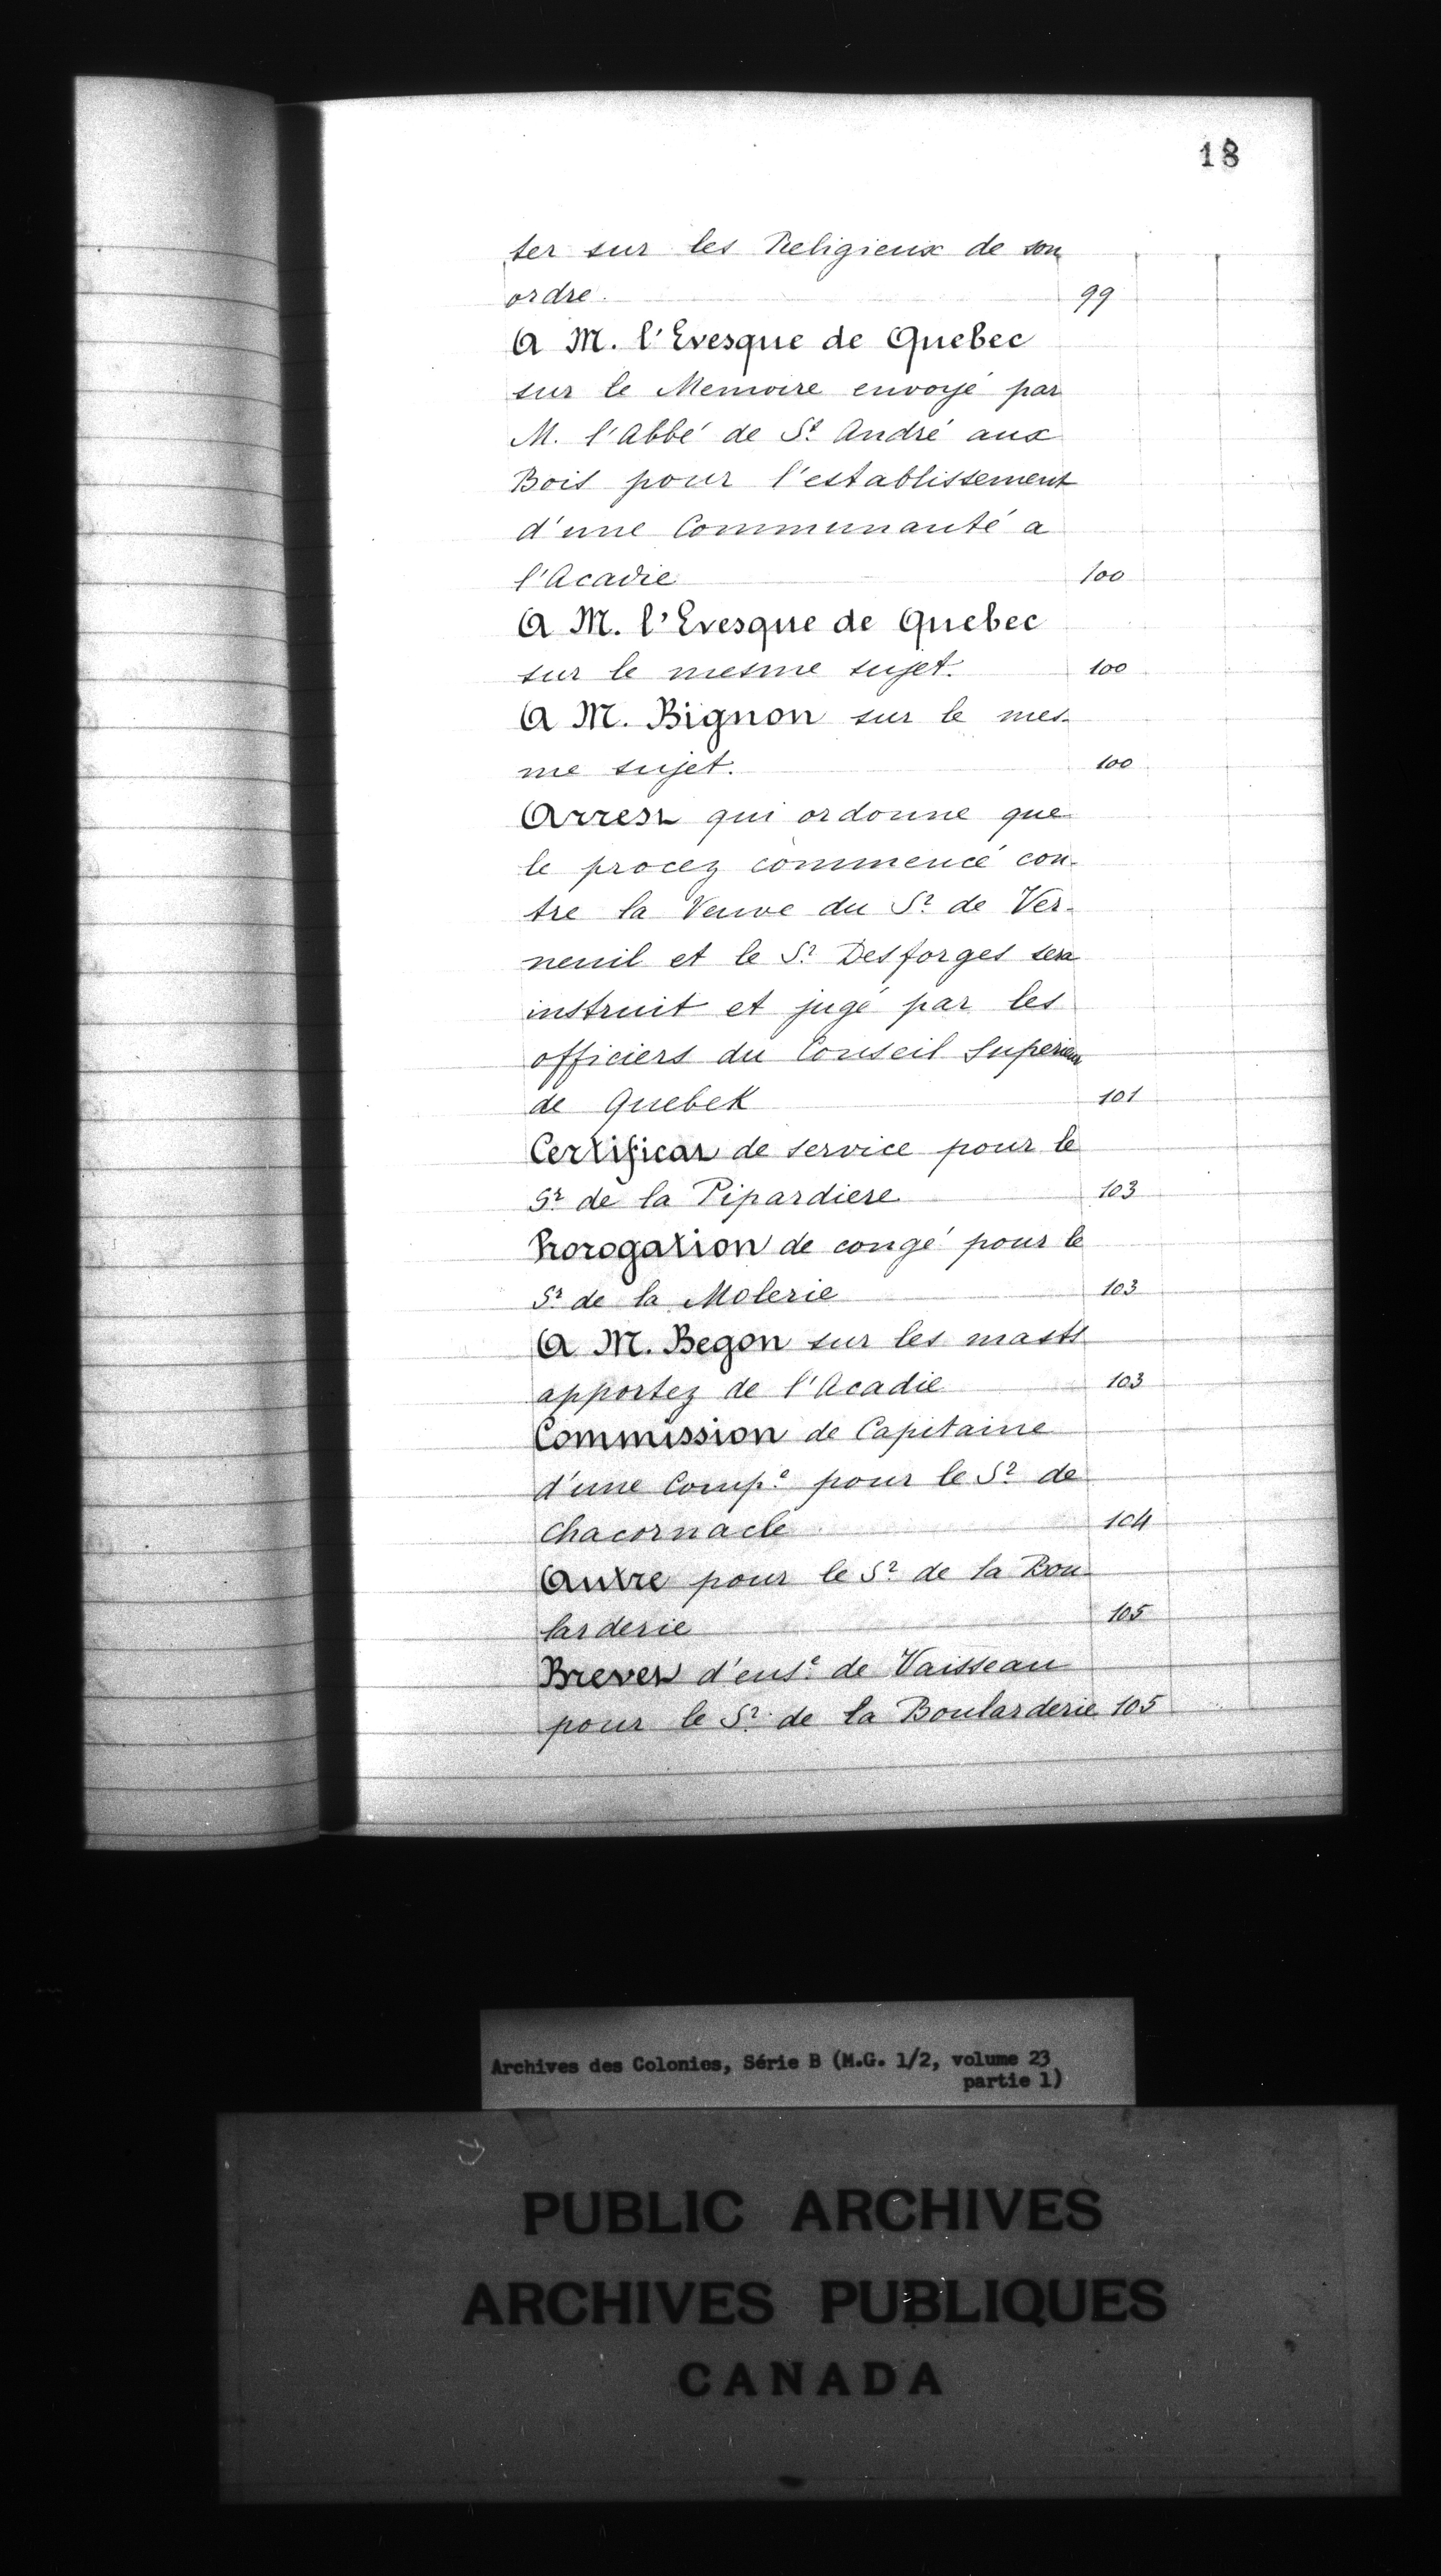 18
ter sur les Religieux de son
ordre. 99
A M. l'Evesque de Quebec
sur le Memoire envoyé par
M. l'Abbé de St. André aux
Bois pour l'establissement
d'une Communauté a
l'Acadie 100
A M. l'Evesque de Quebec
sur le mesme sujet. 100
A M. Bignon sur le mes-
me sujet. 100
Arrest qui ordonne que
le procez commencé con-
tre la Veuve du Sr. de Ver-
neuil et le Sr. Desforges sera
instruit et jugé par les
officiers du Conseil Superieur
de Quebek 101
Certificat de service pour le
Sr. de la Pipardiere 103
Prorogation de congé pour le
Sr. de la Molerie 103
A M. Begon sur les masts
apportez de l'Acadie 103
Commission de Capitaine
d'une Compe. pour le Sr. de
Chacornacle 104
Autre pour le Sr. de la Bou-
larderie 105
Brevet d'ense. de Vaisseau
pour le Sr. de la Boularderie 105
Archives des Colonies, Série B (M.G. 1/2, volume 23
partie 1)
PUBLIC ARCHIVES
ARCHIVES PUBLIQUES
CANADA